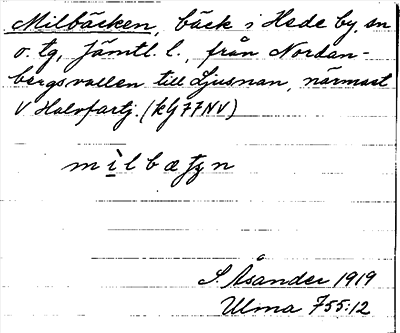 Milbäcken, bäck i Hede by, sn
o. tg, Jämtl. l., från Nordan-
bergsvallen till Ljusnan, närmast
V Halvfartj. (kG77NV)
m ì l b æ tʒ n
S. Åsander 1919
Ulma 755:12